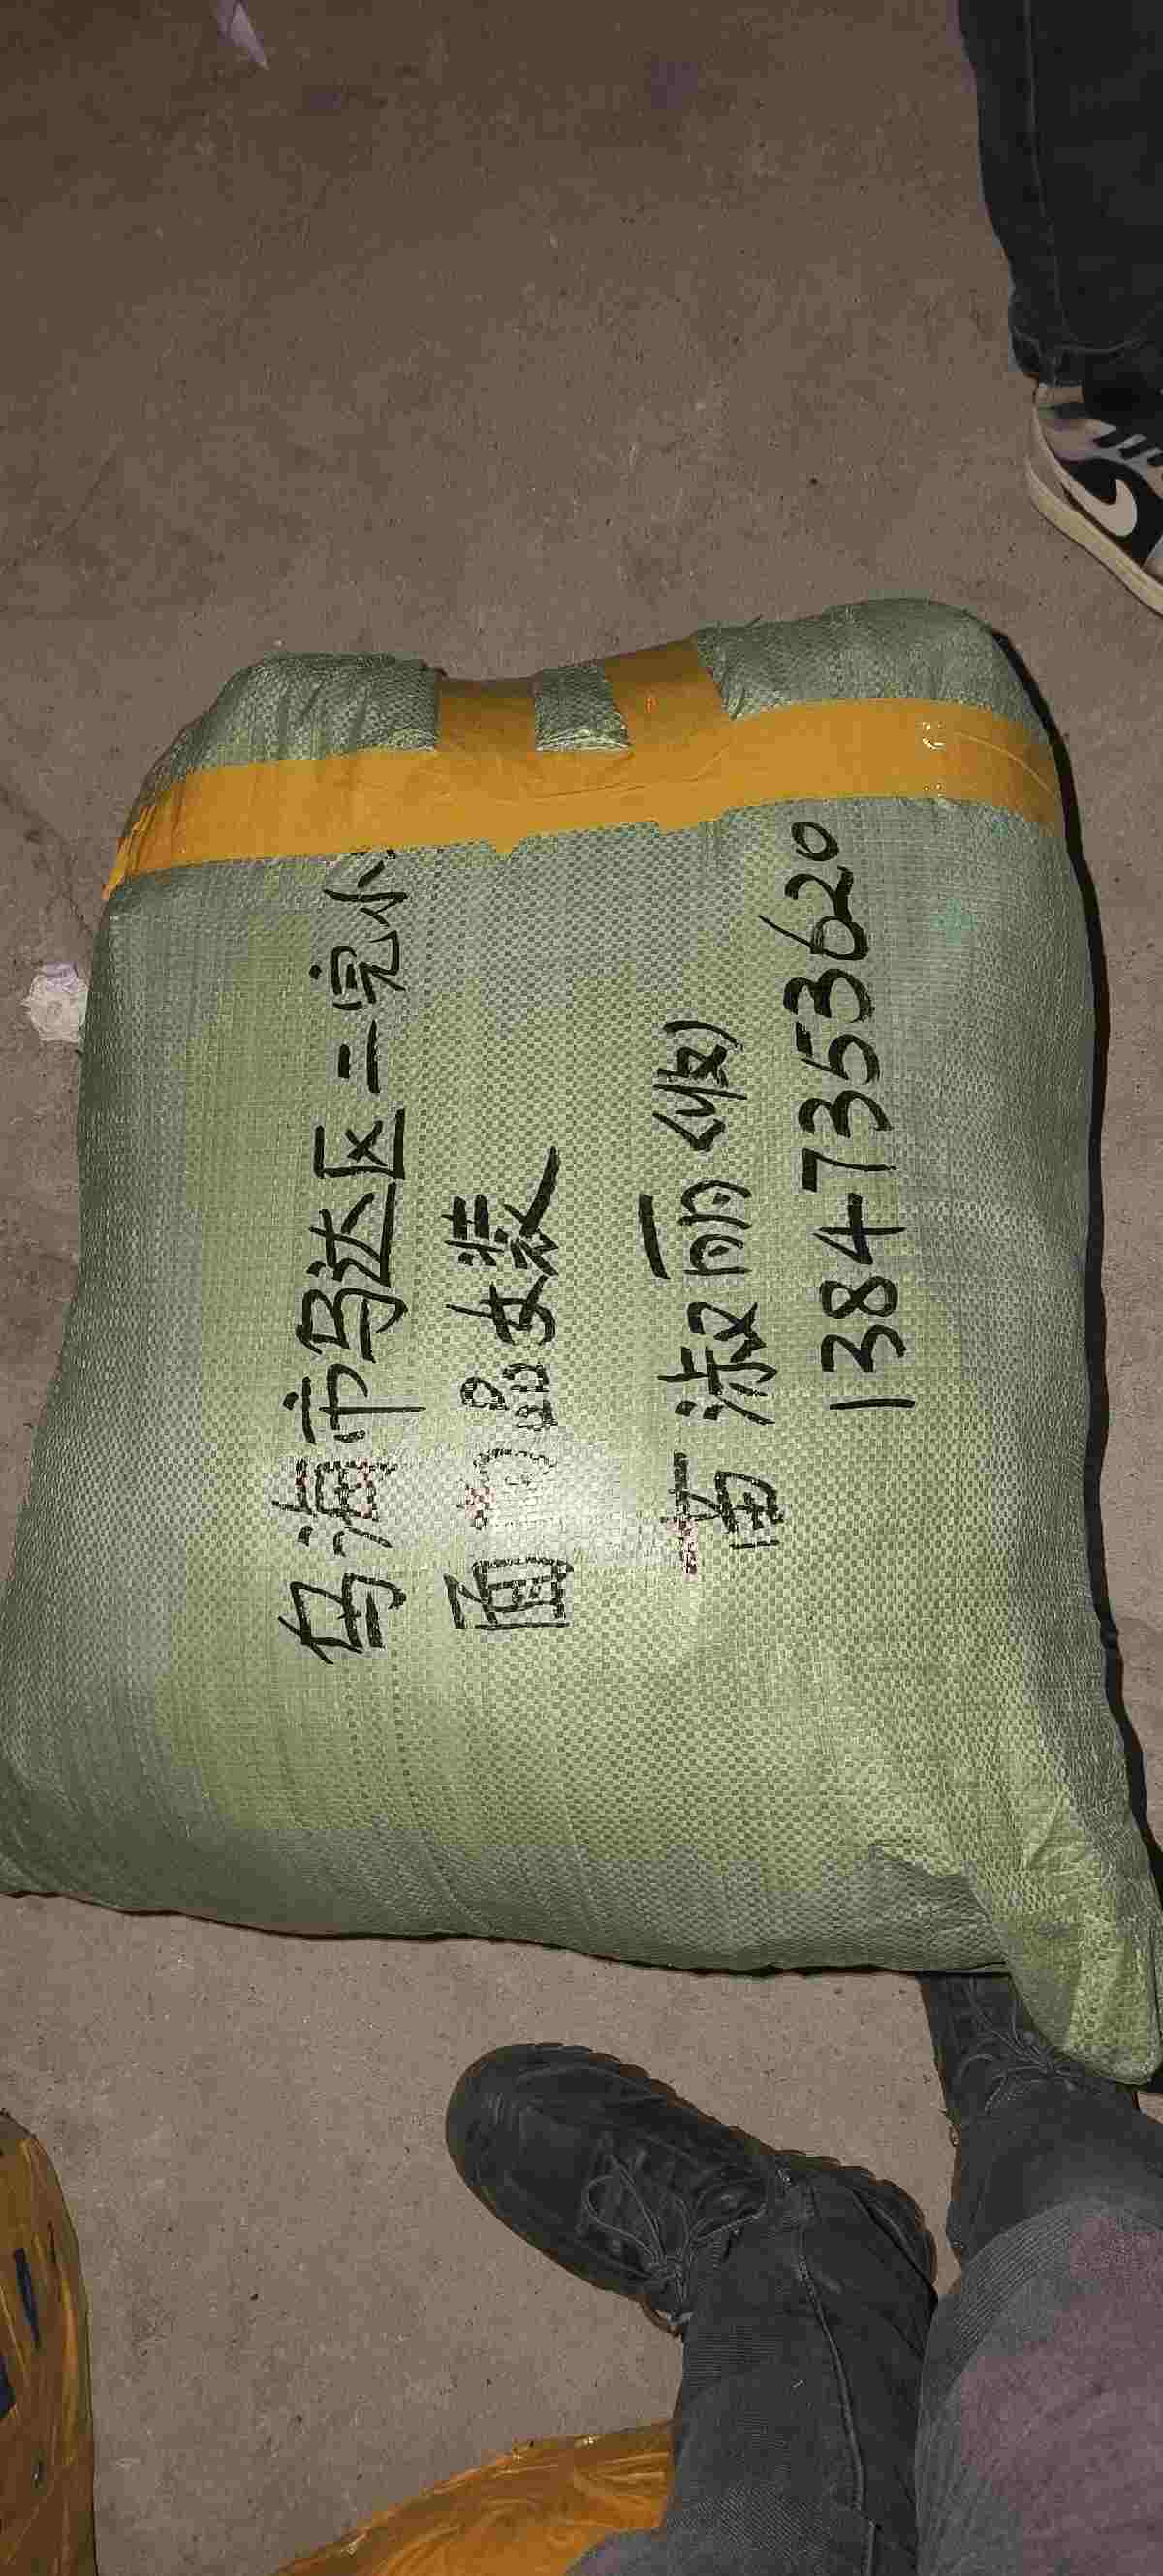 乌海市乌达区二完小
面名品女装
苗淑丽(收)
13847353620